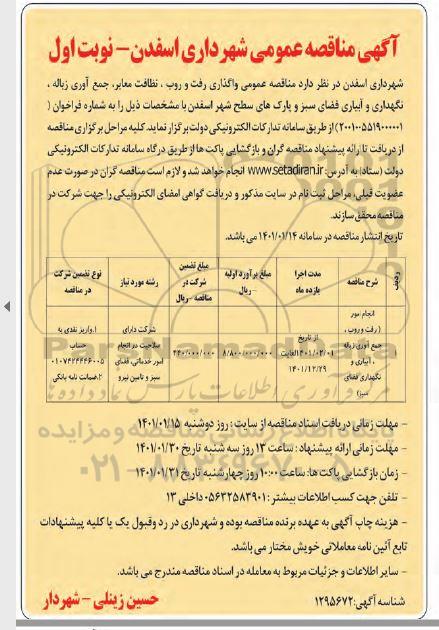 آگهی مناقصه عمومی شهرداری اسفدن - نوبت اول
شهرداری اسفدن در نظر دارد مناقصه عمومی واگذاری رفت و روب ، نظافت معابر، جمع آوری زباله ،
نگهداری و آبیاری فضای سبز و پارک های سطح شهر اسفدن با مشخصات ذیل را به شماره فراخوان (
۲۰۰۱۰۰۵۵۱۹۰۰۰۰۰۱) از طریق سامانه تدارکات الکترونیکی دولت برگزار نماید. کلیه مراحل برگزاری مناقصه
از دریافت تا ارائه پیشنهاد مناقصه گران و بازگشایی پاکت ها از طریق درگاه سامانه تدارکات الکترونیکی
دولت (ستاد) به آدرس: www.setadiran.ir انجام خواهد شد و لازم است مناقصه گران در صورت عدم
عضویت قبلی، مراحل ثبت نام در سایت مذکور و دریافت گواهی امضای الکترونیکی را جهت شرکت در
مناقصه محقق سازند.
تاریخ انتشار مناقصه در سامانه ۱۴۰۱/۰۱/۱۴ می باشد.
ردیف
شرح مناقصه
مدت اجرا
یازده ماه
مبلغ برآورد اولیه
-ریال
مبلغ تضمین
شرکت در
مناقصه -ریال
رشته مورد نیاز
نوع تضمین شرکت
در مناقصه
۱
انجام امور
( رفت و روب ،
جمع آوری زباله
، آبیاری و
نگهداری فضای
سبز)
از تاریخ
۱۴۰۱/۰۲/۰۱ لغایت
۱۴۰۱/۱۲/۲۹
۸/۸۰۰/۰۰۰/۰۰۰
۴۴۰/۰۰۰/۰۰۰
شرکت دارای
صلاحیت در انجام
امور خدماتی، فضای
سبز و تامین نیرو
۱.واریز نقدی به
حساب
۰۱۰۷۴۲۴۴۴۶۰۰۵
۲.ضمانت نامه بانکی
- مهلت زمانی دریافت اسناد مناقصه از سایت : روز دوشنبه ۱۴۰۱/۰۱/۱۵
- مهلت زمانی ارائه پیشنهاد : ساعت ۱۳ روز سه شنبه تاریخ ۱۴۰۱/۰۱/۳۰
- زمان بازگشایی پاکت ها: ساعت ۱۰:۰۰ روز چهارشنبه تاریخ ۱۴۰۱/۰۱/۳۱
- تلفن جهت کسب اطلاعات بیشتر : ۰۵۶۳۲۵۸۳۹۰۱ داخلی ۱۳
- هزینه چاپ آگهی به عهده برنده مناقصه بوده و شهرداری در رد وقبول یک یا کلیه پیشنهادات
تابع آئین نامه معاملاتی خویش مختار می باشد.
- سایر اطلاعات و جزئیات مربوط به معامله در اسناد مناقصه مندرج می باشد.
شناسه آگهی: ۱۲۹۵۶۷۲
حسین زینلی - شهردار